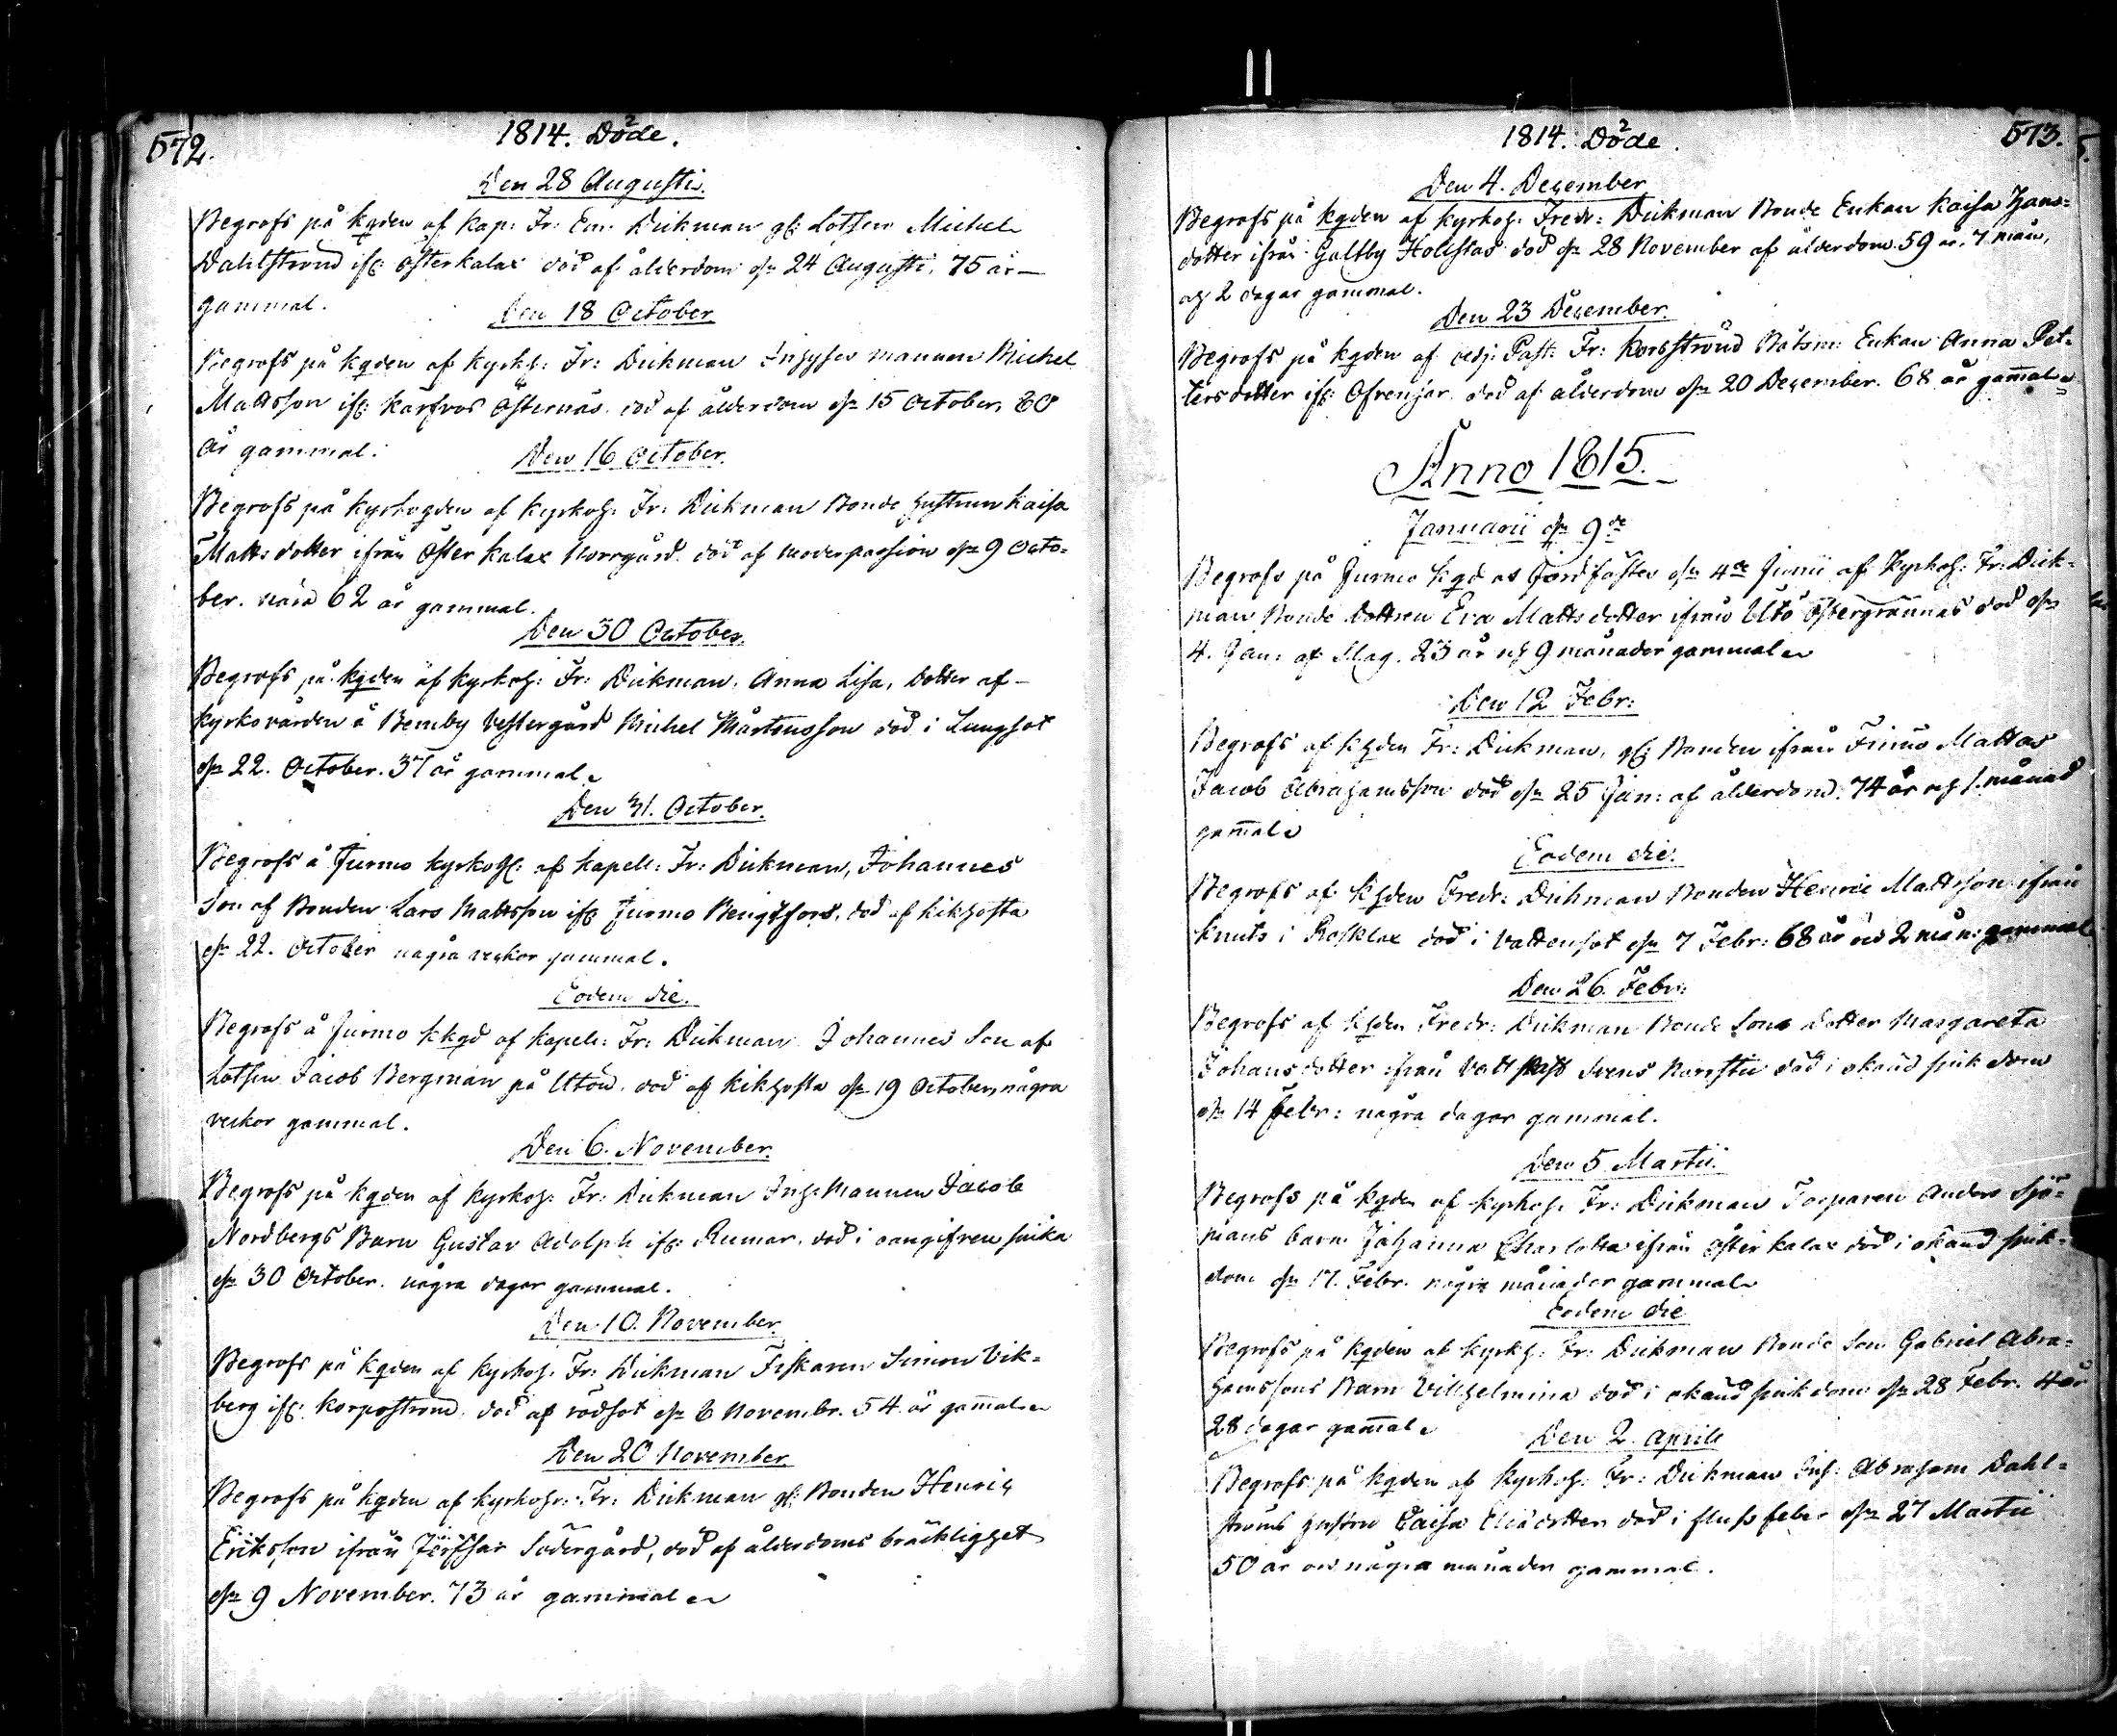 572.
1814. Döde.
Den 28 Augusti.
Begrofs på kgden af Kap: Fr: Em: Dickman gl: Lotsen Michel
Dahlstrond ifr: Österkalax död af ålderdom den 24 Augusti, 75 år
gammal.
Den 18 October
Begrofs på kgden af kyrkh: Fr: Dickman Inhyses mannen Michel
Mattsson ifr: Östernäs död af ålderdom den 15 October, 80
år gammal.
Den 16 October.
Begrofs på kyrkogden af kyrkoh: Fr: Dickman Bonde hustrun Kaisa
Mattsdotter ifrån Österkalax Norrgård död af moderpassion den 9 Octo=
ber. 62 år gammal.
Den 30 October.
Begrofs på kgden af kyrkoh: Fr: Dickman, Anna Lisa, dotter af
kyrkovärden å Benby Vestergård Michel Mårtensson död i Lungsot
den 22. October. 37 år gammal
Den 31. October.
Begrofs å Jurmo kyrkog: af Kapell: Fr: Dickman, Johannes
Son af Bonden Lars Mattsson ifr: Jurmo, död af kikhosta
den 22. October några veckor gammal.
Eodem die.
Begrofs å Jurmo kkgd af Kapell: Fr: Dickman Johannes Son af
Lotsen Jacob Bergman på Utön, död af kikhosta den 19 October, några
veckor gammal.
Den 6. November.
Begrofs på kgden af kyrkoh: Fr: Dickman Inh: Mannen Jacob
Nordbergs Barn Gustav Adolph ifr: Rumar, död i oangifven siuka
den 30 October. några dagar gammal.
Den 10. November.
Begrofs på kgden af kyrkoh: Fr: Dickman Fiskaren Simon Vik=
berg ifr: Korpoström, död af rödsot den 6 Novembr. 54 år gammal
Den 20 November
Begrofs på kgden af kyrkohr: Fr: Dickman gl: Bonden Henric
Eriksson ifrån Södergård, död af ålderdoms bräcklighet
den 9 November. 73 år gammal
1814. Döde.
573.
Den 4. December
Begrofs på kgden af kyrkoh: Fredr: Dickman Bonde Enkan Kaisa Hans=
dotter ifrån Galtby död den 28 November af ålderdom 59 år, 7 mån,
och 2 dagar gammal.
Den 23 December.
Begrofs på kgden af Adj: Past: Fr: Korsström Båtsm: Enkan Anna Pet=
tersdotter ifr: död af ålderdom den 20 December. 68 år gamal
Anno 1815.
Januarii den 9de
Begrofs på Jurmo kgd af kyrkoh: Fr: Dick=
man Bonde dottren Eva Mattsdotter ifrån Utö Östergrannas död den
4. Jan: af Slag. 23 år och 9 månader gammal
Den 12 Febr:
Begrofs af Khden Fr: Dickman, gl: Bonden ifrån Finnö Mattas
Jacob Abrahamsson död den 25 Jan: af ålderdom. 74 år och 1. månad
gamal
Eodem die:
Begrofs af Khden Fredr: Dickman Bonden Henric Mattsson ifrån
Knuts i Rosklax död i vattusot den 7 Febr: 68 år och 2 mån: gammal
Den 26. Febr:
Begrofs af Khden Fredr: Dickman Bonde Sons dotter Margareta
Johansdotter ifrån död i okänd siukdom
den 14 Febr: några dagar gammal.
Den 5 Martii.
Begrofs på kgden af kyrkoh. Fr: Dickman Torparen Anders Sjö=
mans barn Johanna Charlotta ifrån Österkalax död i okänd siuk=
dom den 17. Febr. några månader gammal
Eodem die
Begrofs på kgden af kyrkh: Fr: Dickman Bonde Son Gabriel Abra=
hamssons Barn Vilhelmina död i okänd siukdom den 28 Febr. 4 år
28 dagar gamal
Den 2. Aprill
Begrofs på kgden af kyrkoh: Fr: Dickman Inh: Abraham Dahl=
ströms hustru Caisa död i flussfeber den 27 Martii
50 år och några månader gammal.